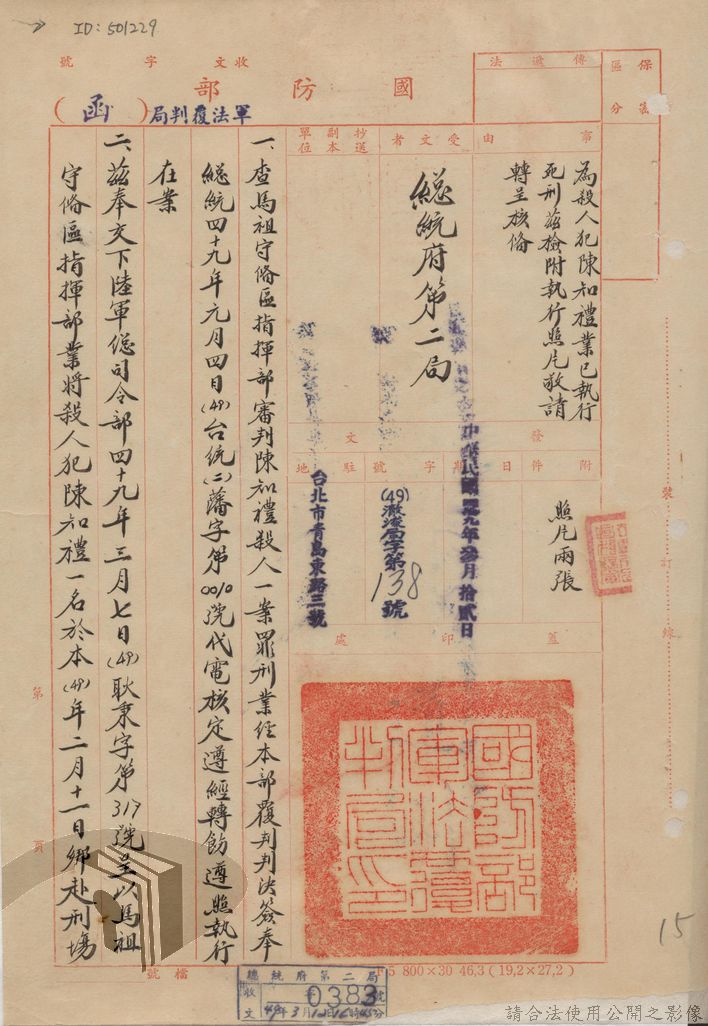 ID: 501229
收文 字 號
國防部
軍法覆判局
(函)
保密
區分
傳遞法
事由
為殺人犯陳知禮業已執行
死刑茲檢附執行照片敬請
轉呈核備
受文者
總統府第二局
抄送
副本
單位
附件
照片兩張
發文
日期
中華民國四九年叁月拾貳日
字號
(49)
字第138號
駐地
台北市青島東路三號
蓋印處
國防部軍法覆判局印
一、查馬祖守備區指揮部審判陳知禮殺人一案罪刑業經本部覆判判決簽奉
總統四十九年元月四日(49)台統(二)藩字第0010號代電核定遵經轉飭遵照執行
在案
二、茲奉交下陸軍總司令部四十九年三月七日(49)耿秉字第319號呈以馬祖
守備區指揮部業將殺人犯陳知禮一名於本(49)年二月十一日綁赴刑場
裝訂線
第 頁
檔號
15
800×30 46,3 (19,2×27,2)
總統府第二局
收文 字 0383 號
49年3月12日16時45分
請合法使用公開之影像